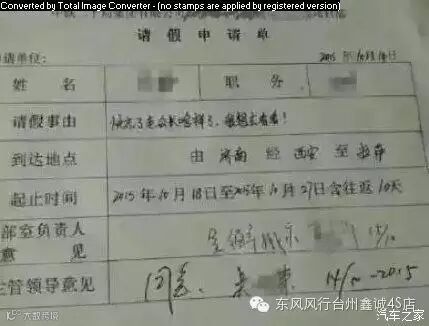 Converted by Total Image Converter - (no stamps are applied by registered version)
请假申请单
请单位： 2015 年 10 月 14 日
姓名 职务
请假事由 快忘了老公长啥样了，我想去看看！
到达地点 由 济南 经 西安 至
起止时间 2015年10月18日至2015年10月27日含往返10天
部室负责人
意见 呈领导批示
主管领导意见 同意 14/10-2015
东风风行台州鑫诚4S店
大数跨境
汽车之家